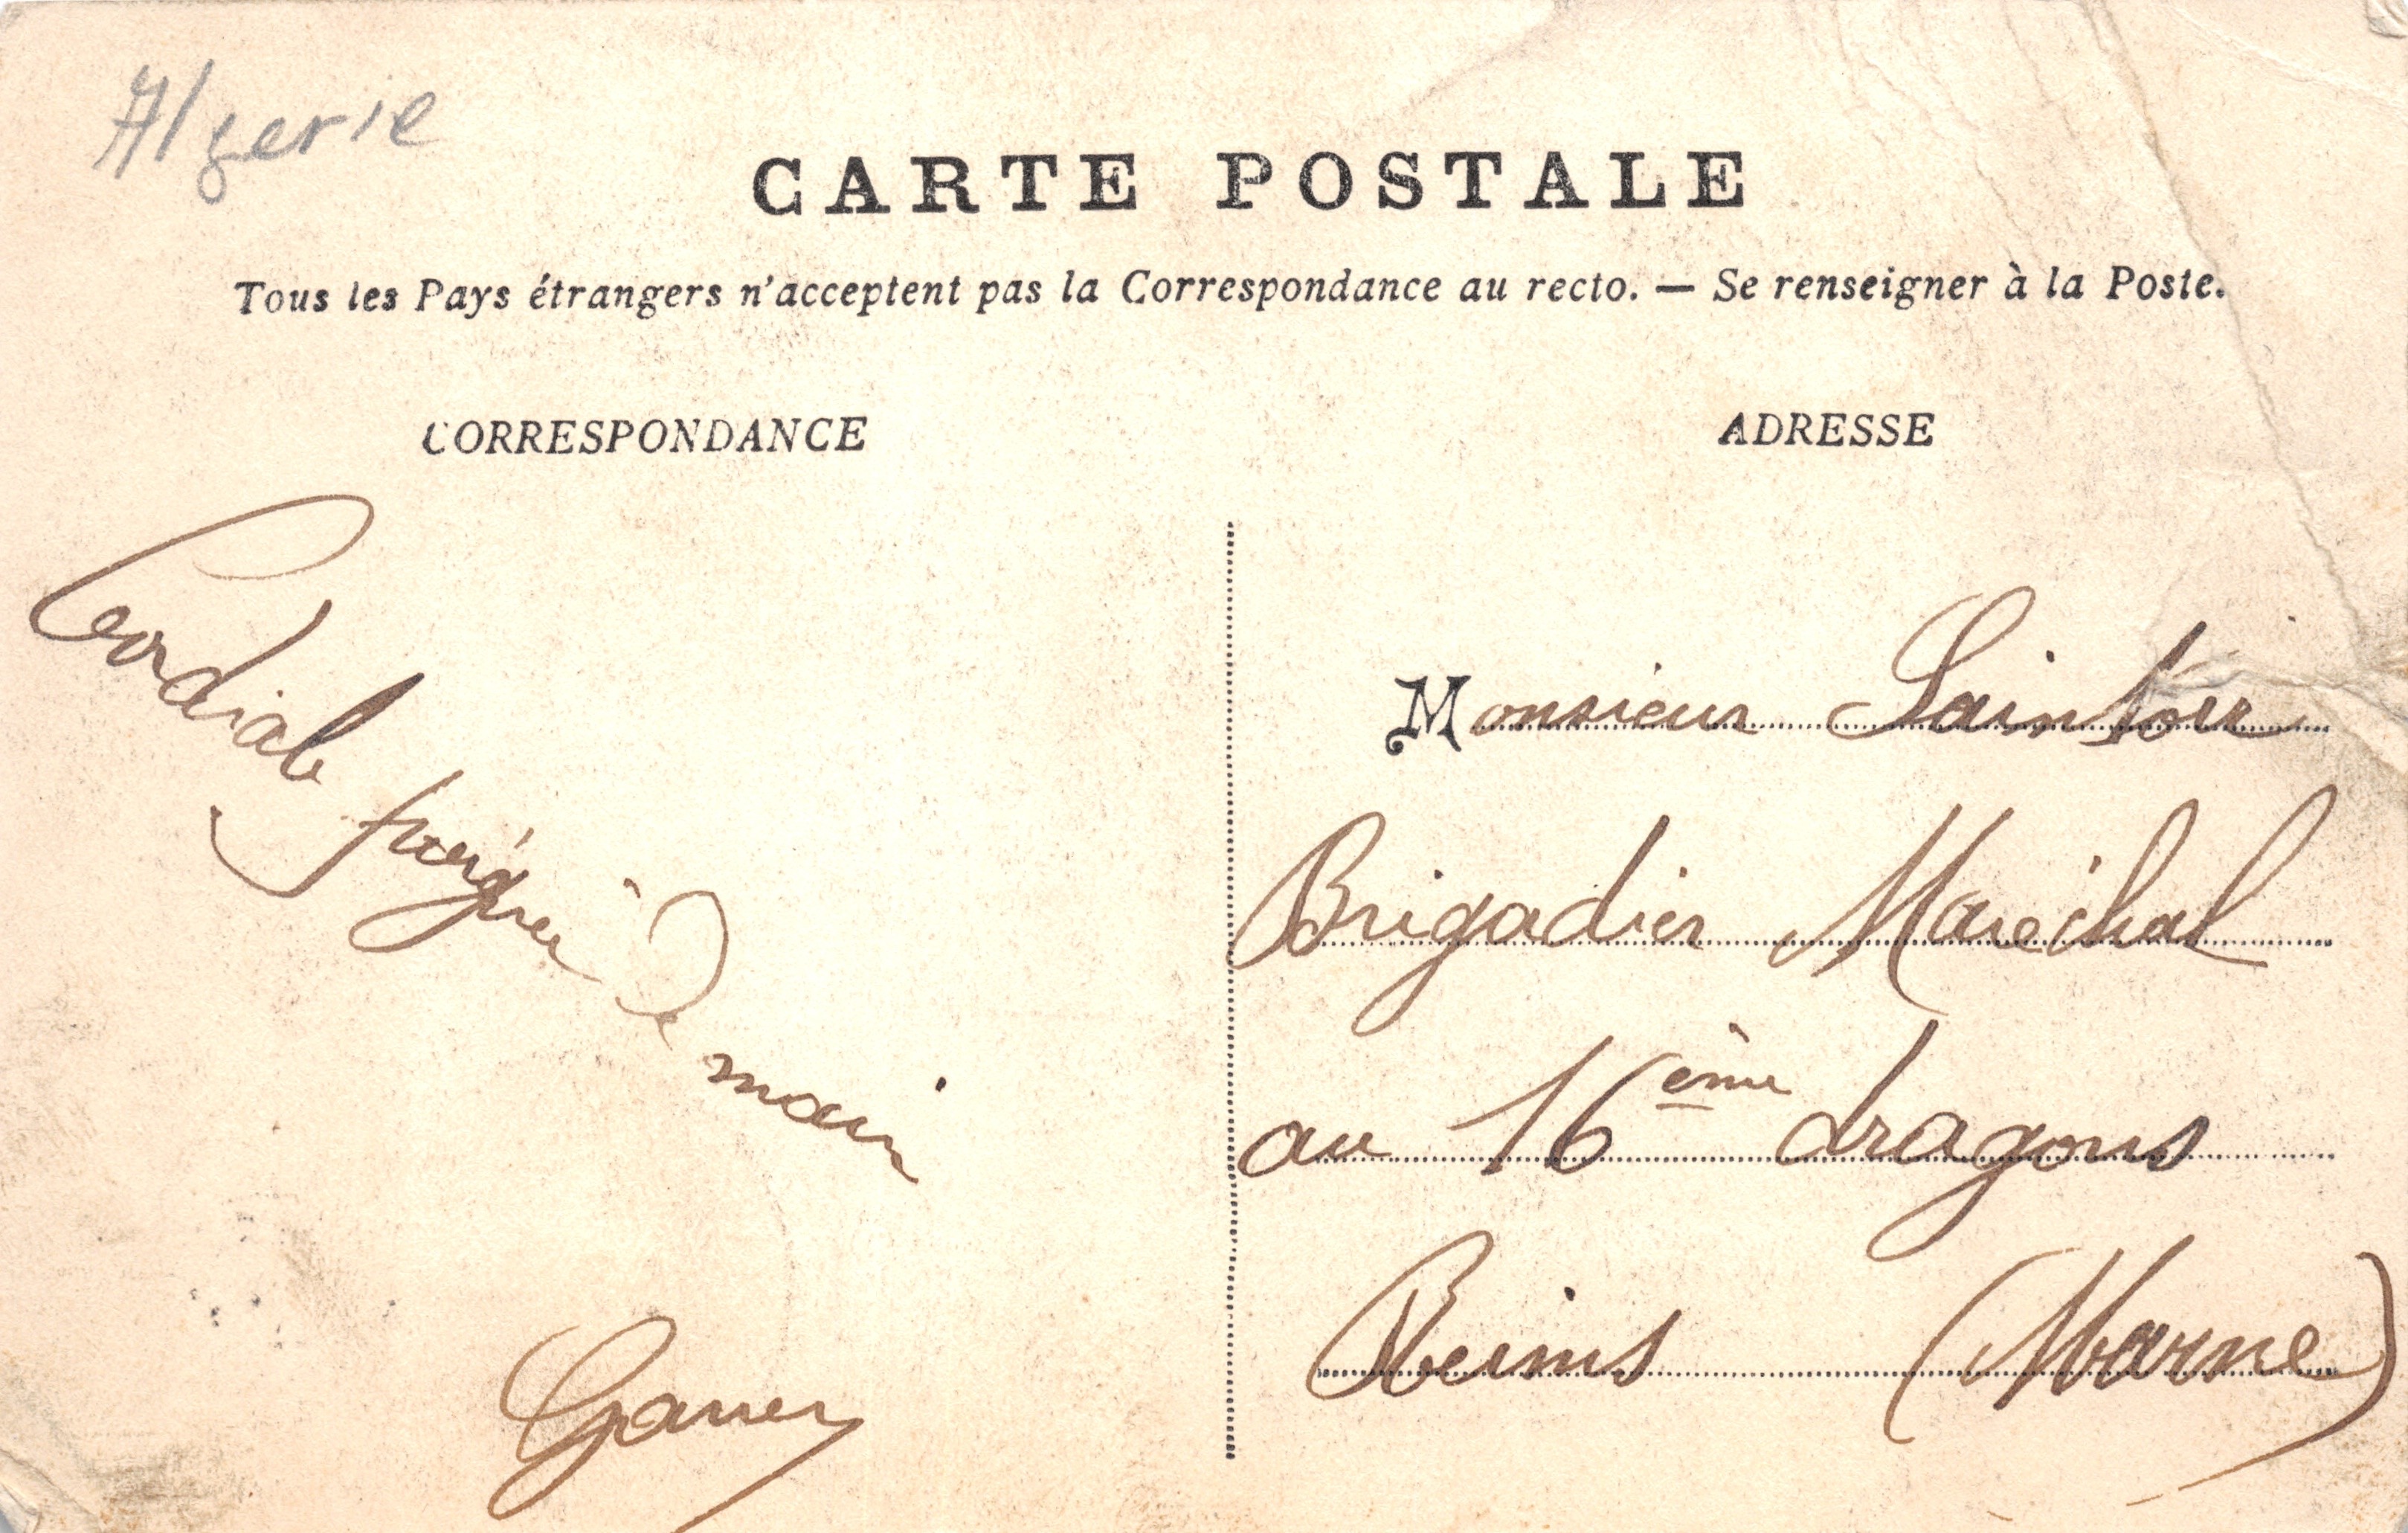 Algerie
CARTE POSTALE
Tous les Pays étrangers n'acceptent pas la Correspondance au recto. — Se renseigner à la Poste.
CORRESPONDANCE
Cordiale
poignée de main
ADRESSE
Monsieur
Brigadier Maréchal
au 16ème dragons
Reims (Marne)